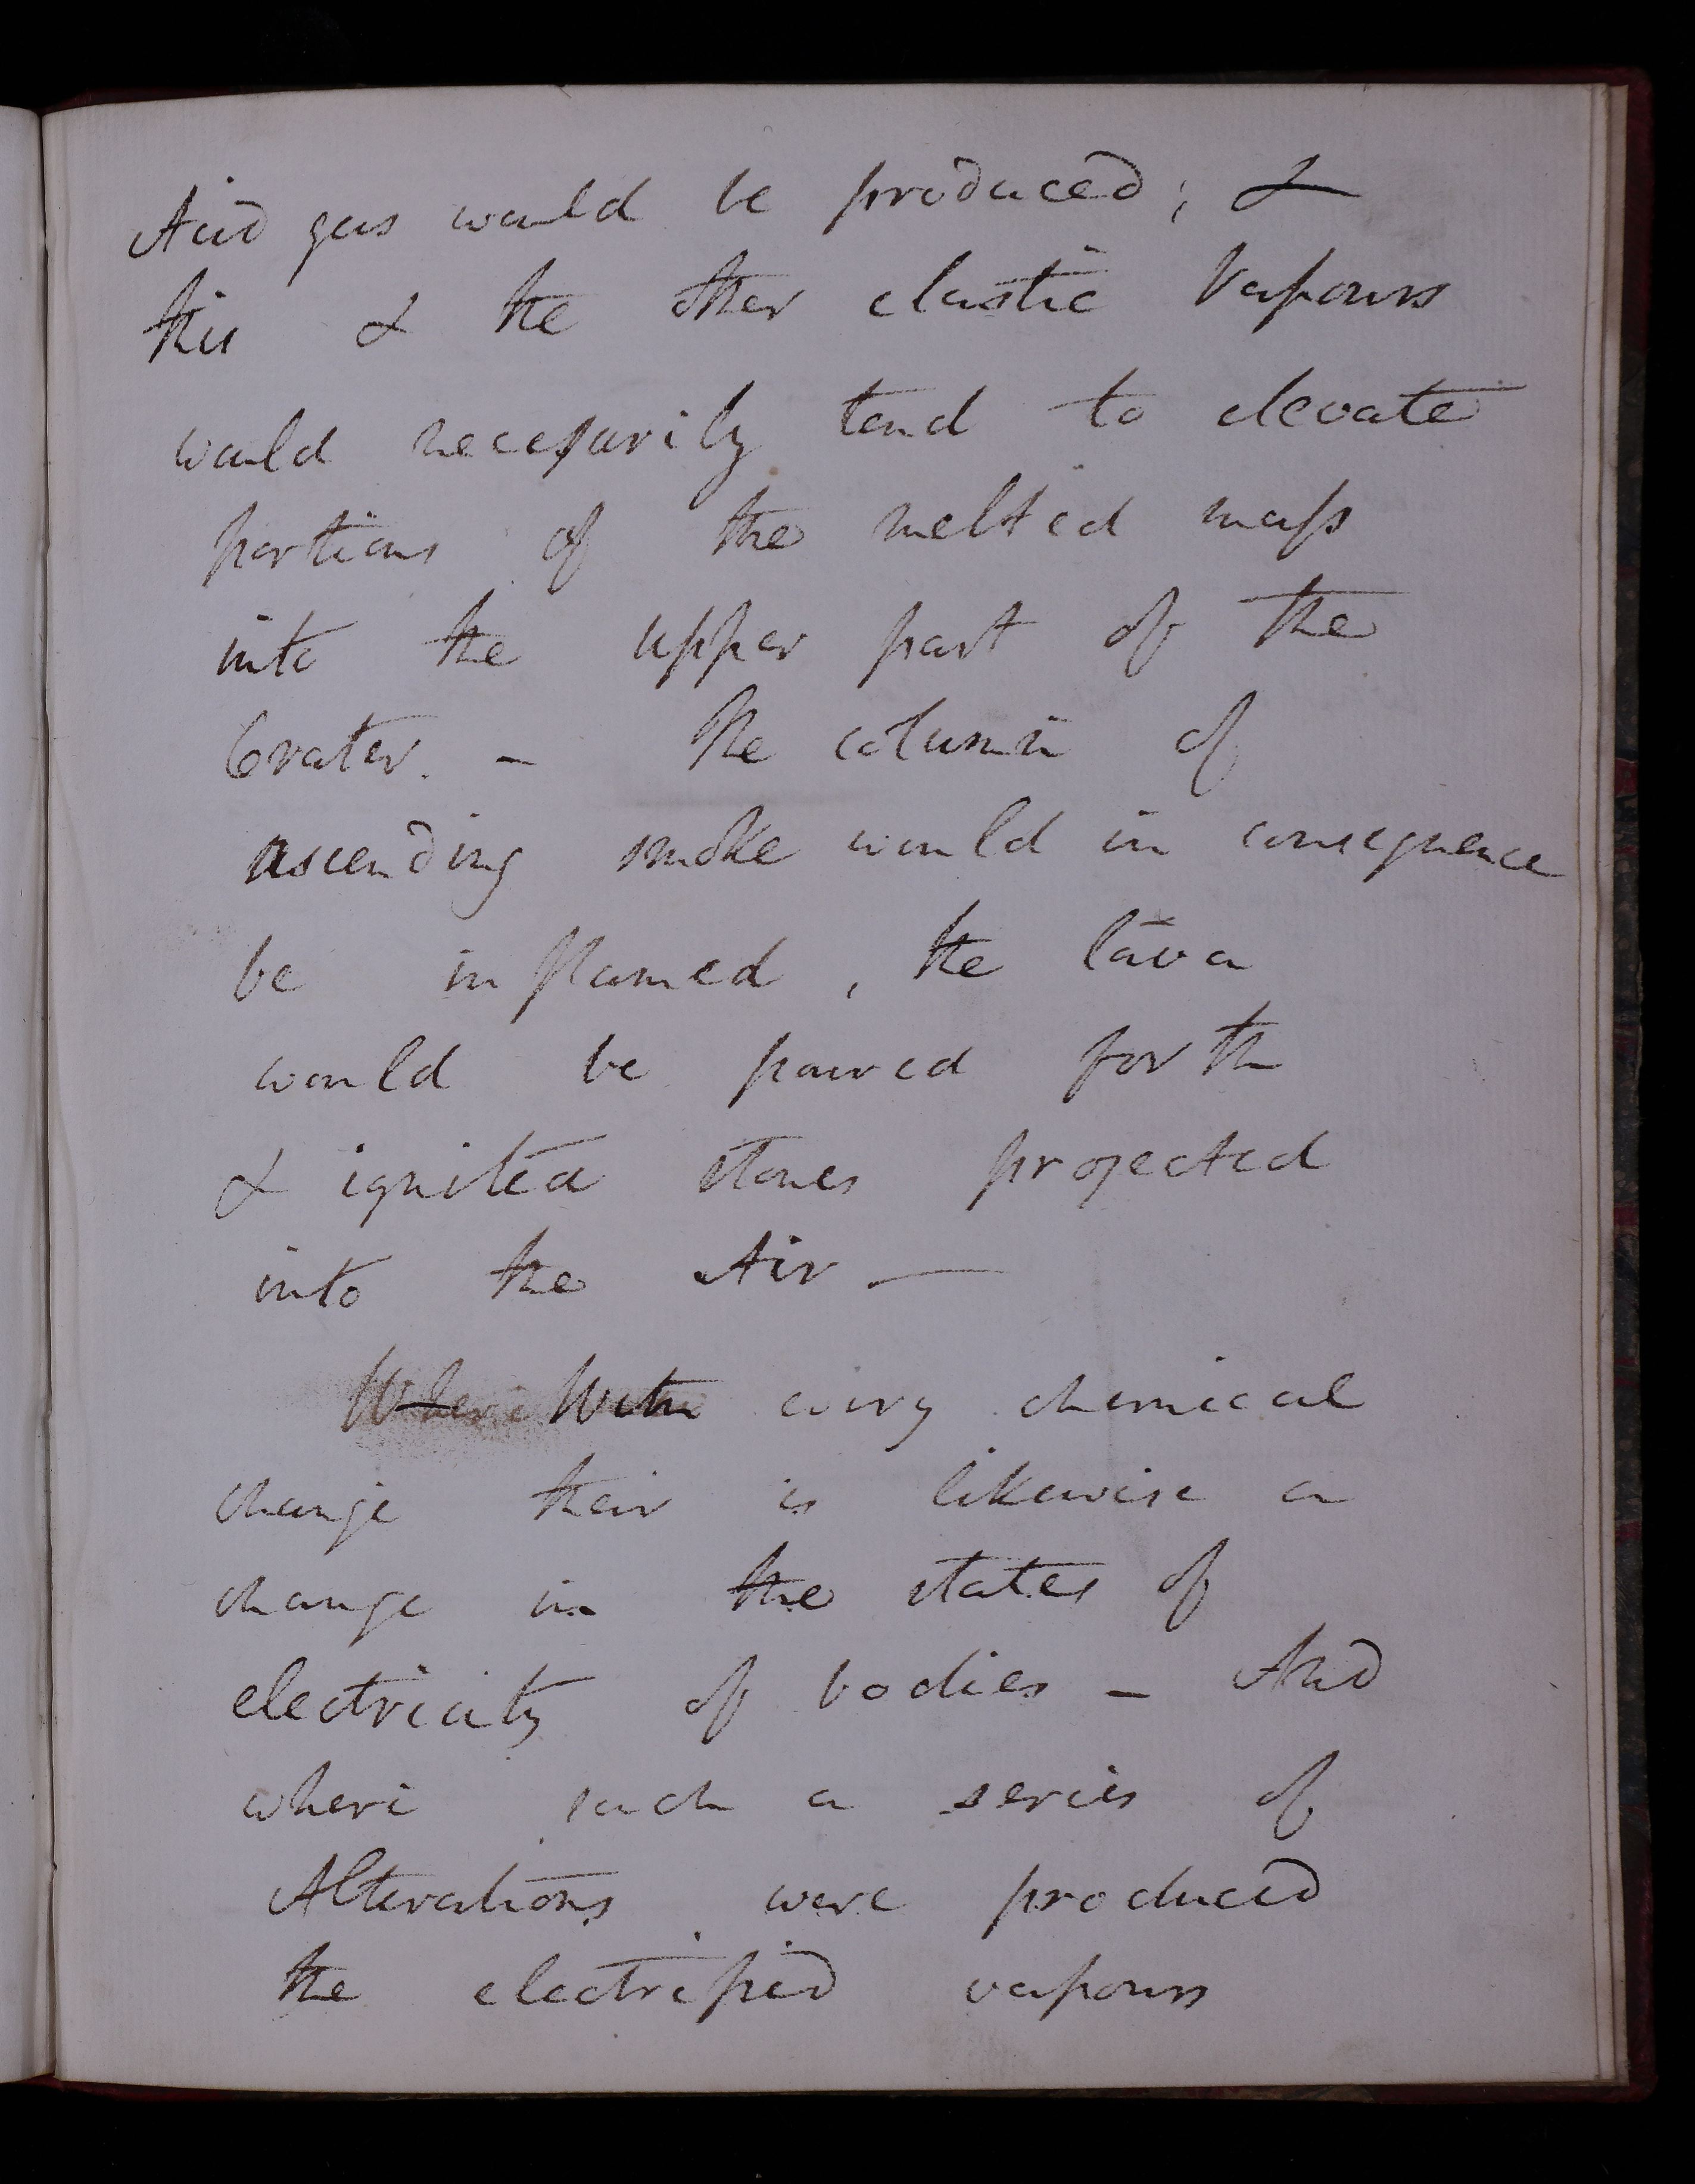 Acid gas would be produced; &
this & the other elastic Vapours
would necessarily tend to elevate
portions of the melted mass
into the upper part of the
Crater. – The column of
ascending smoke would in consequence
be inflamed, the lava
would be poured forth
& ignited stones projected
into the Air —
Where With every chemical
change their is likewise a
change in the states of
electricity of bodies – And
where such a series of
Alterations were produced
the electrified vapours